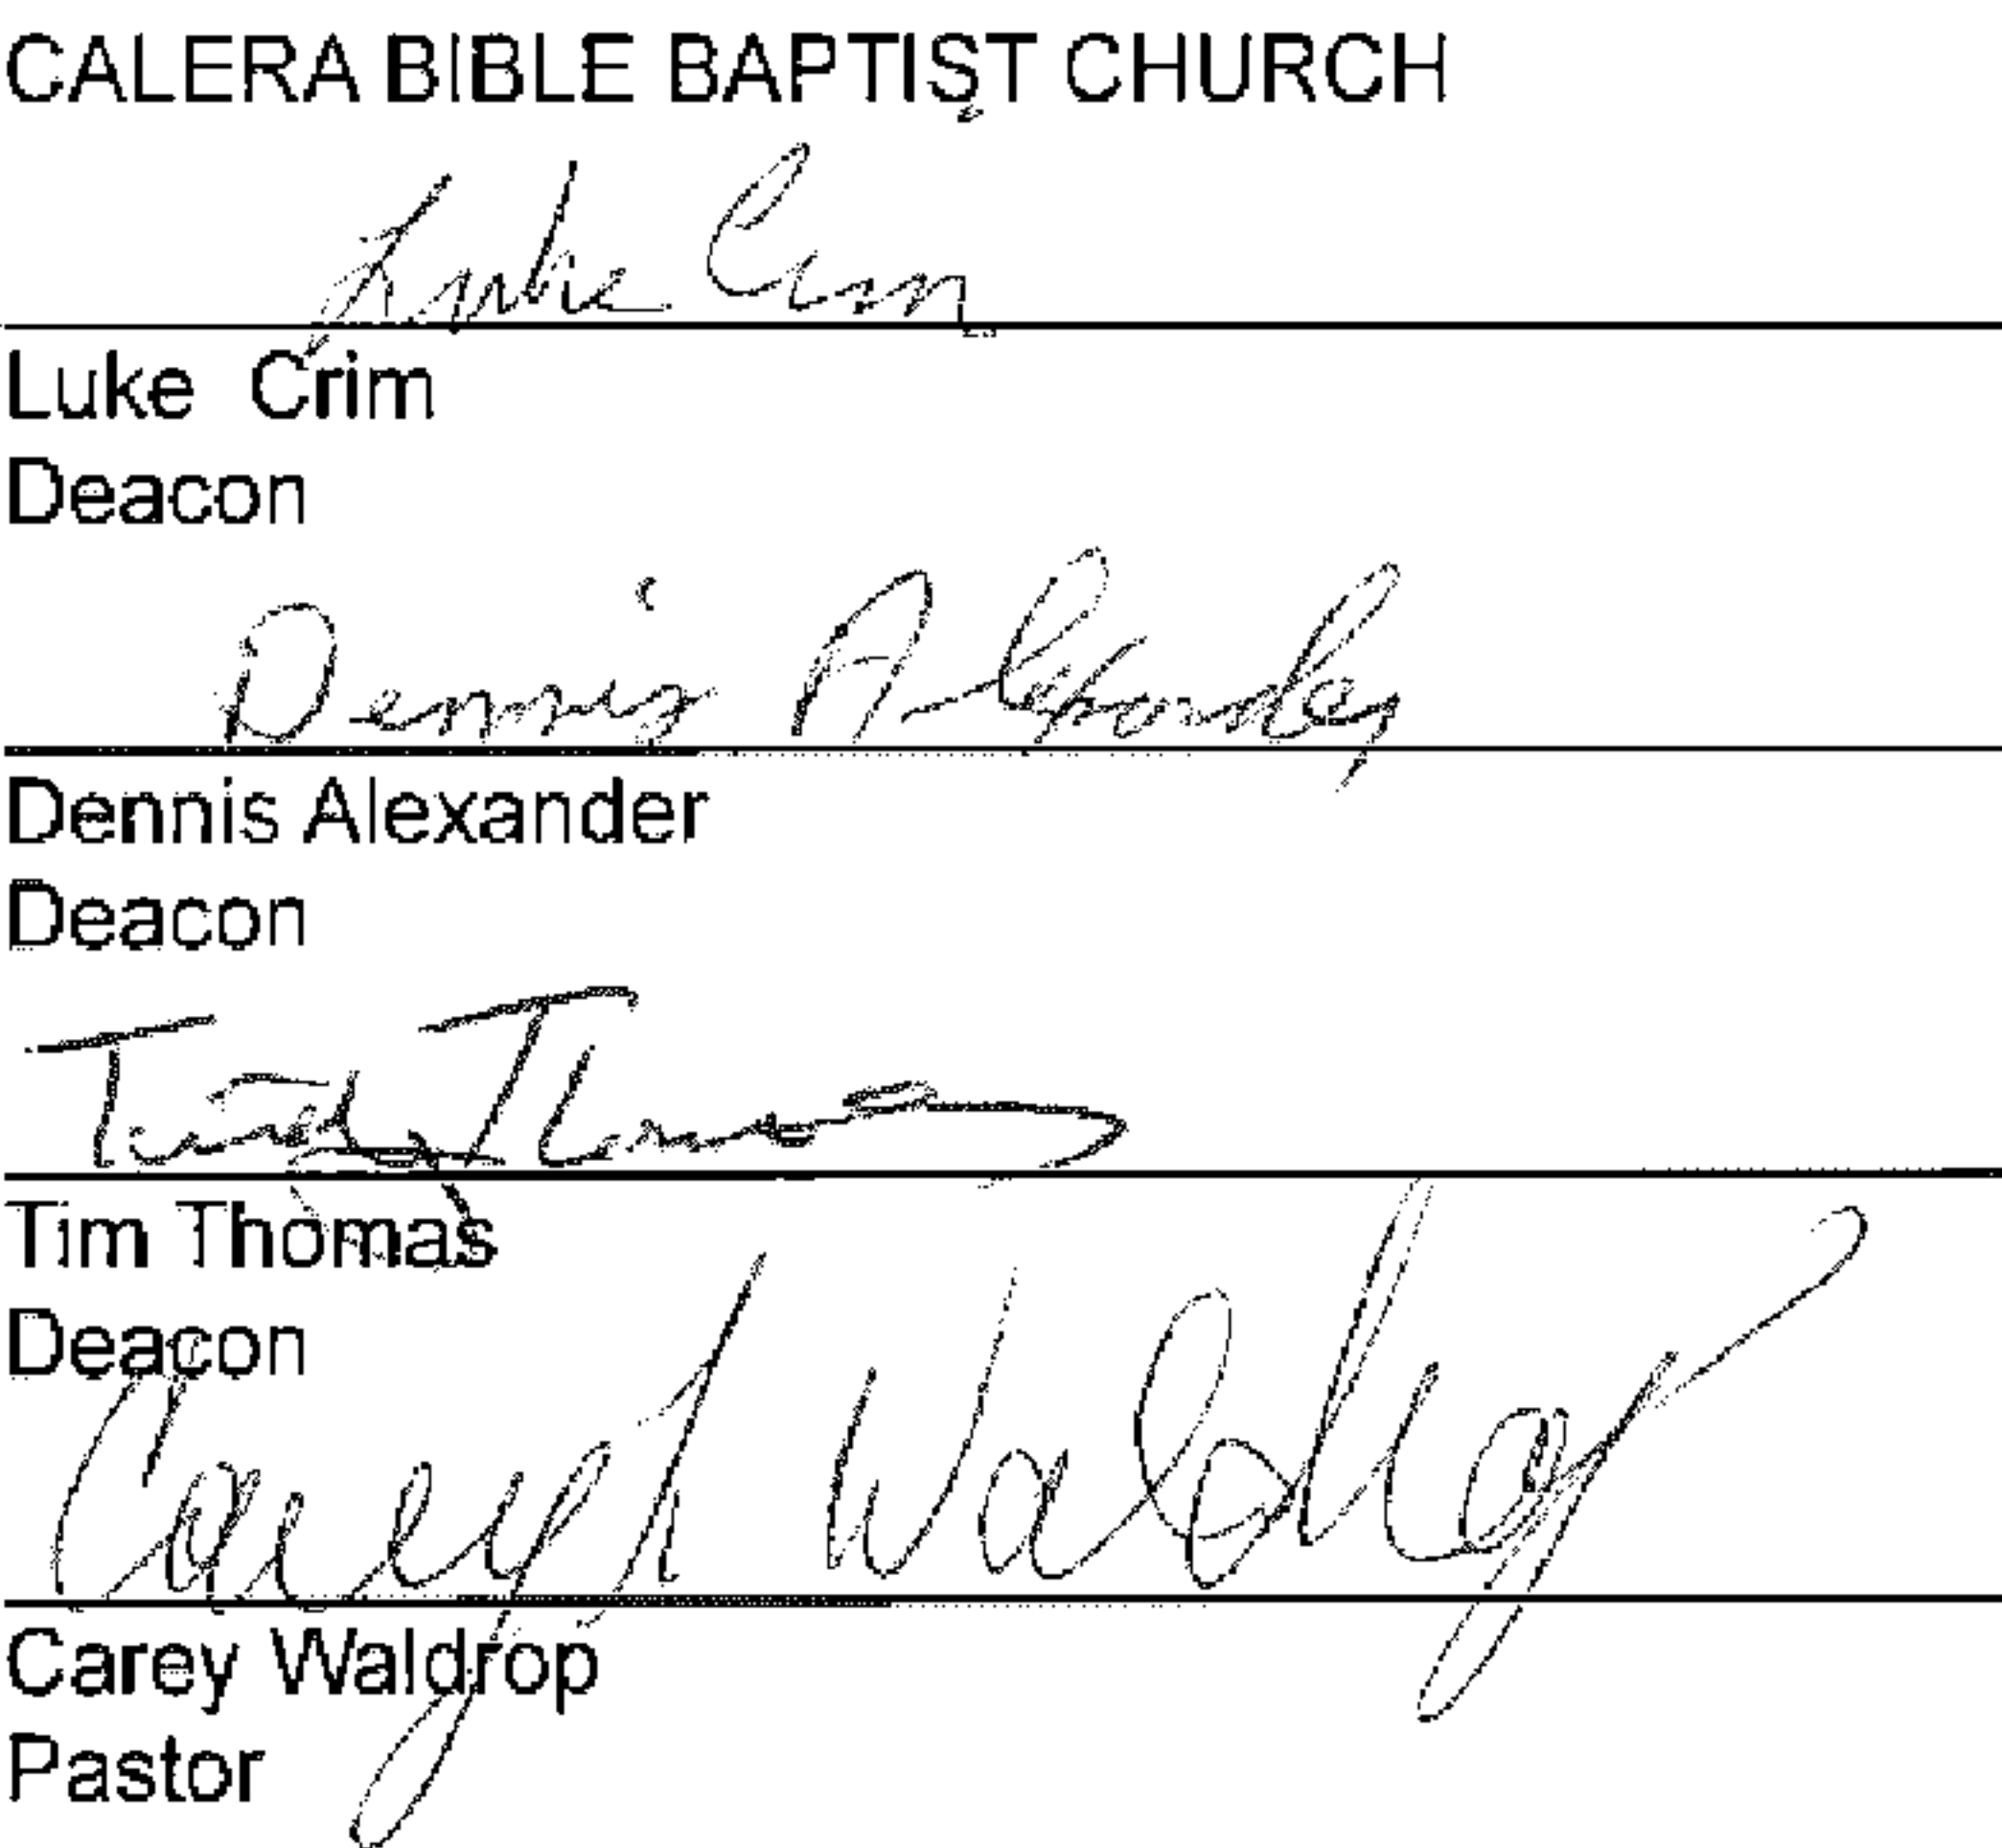 CALERA BIBLE BAPTIST CHURCH
Luke Crim
Luke Crim
Deacon
Dennis Alexander
Dennis Alexander
Deacon
Thomas
Tim Thomas
Deacon
Carey Waldrop
Carey Waldrop
Pastor